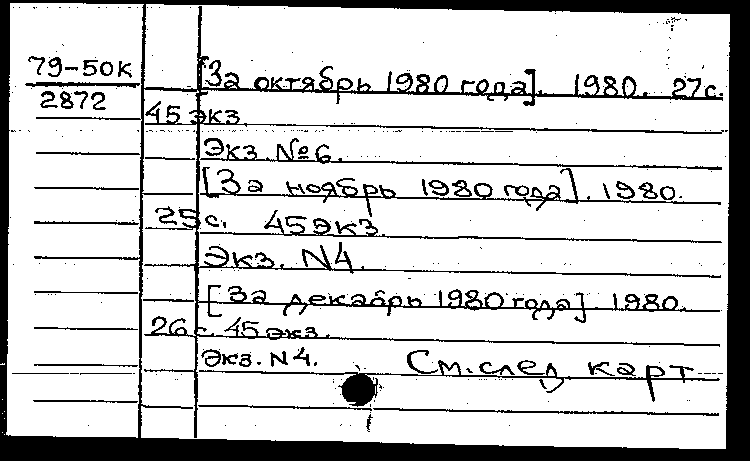 79-50К
2872
[За октябрь 1980 года]. 1980. 27с.
45 экз.
Экз. №6.
[За ноябрь 1980 года]. 1980.
25с. 45 экз.
Экз. N4.
[За декабрь 1980 года] 1980.
26с. 45 экз.
Экз. N4. См. след. карт